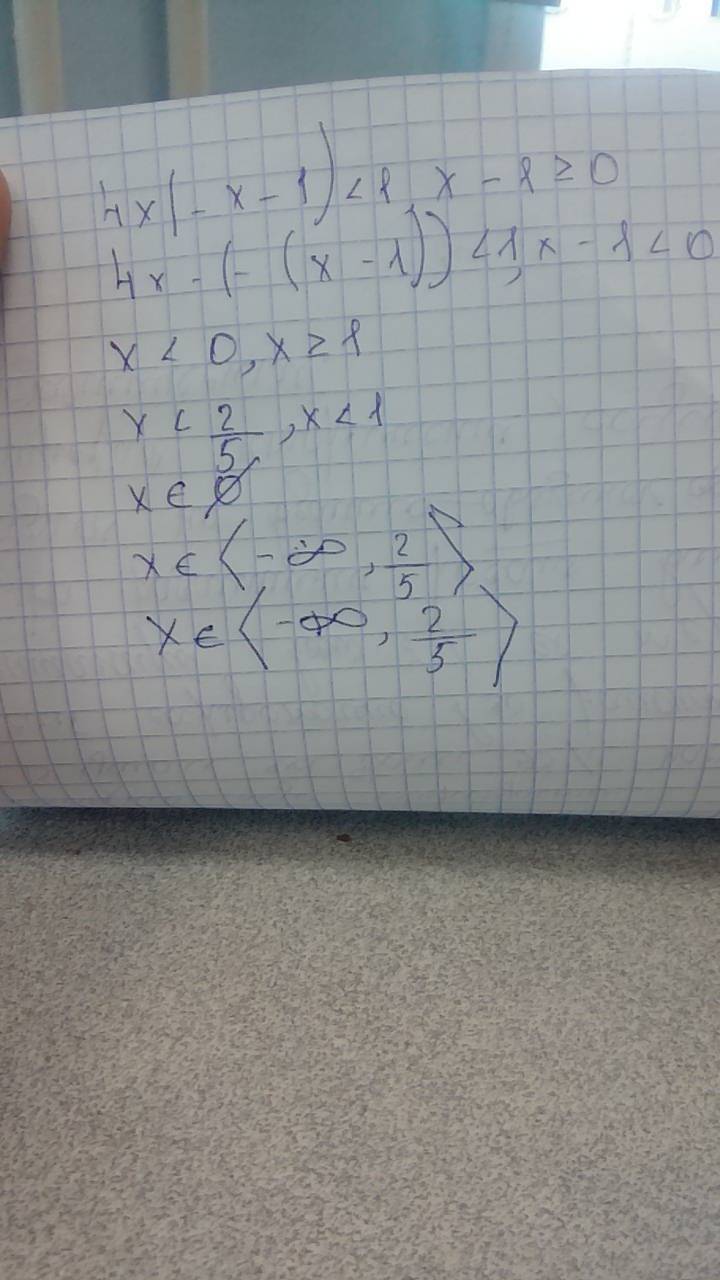 4x(-x-1)<1 x-1≥0
4x-(-(x-1))<1,x-1<0
x<0,x≥1
x<2/5,x<1
x∈∅
x∈⟨-∞,2/5⟩
x∈⟨-∞,2/5⟩